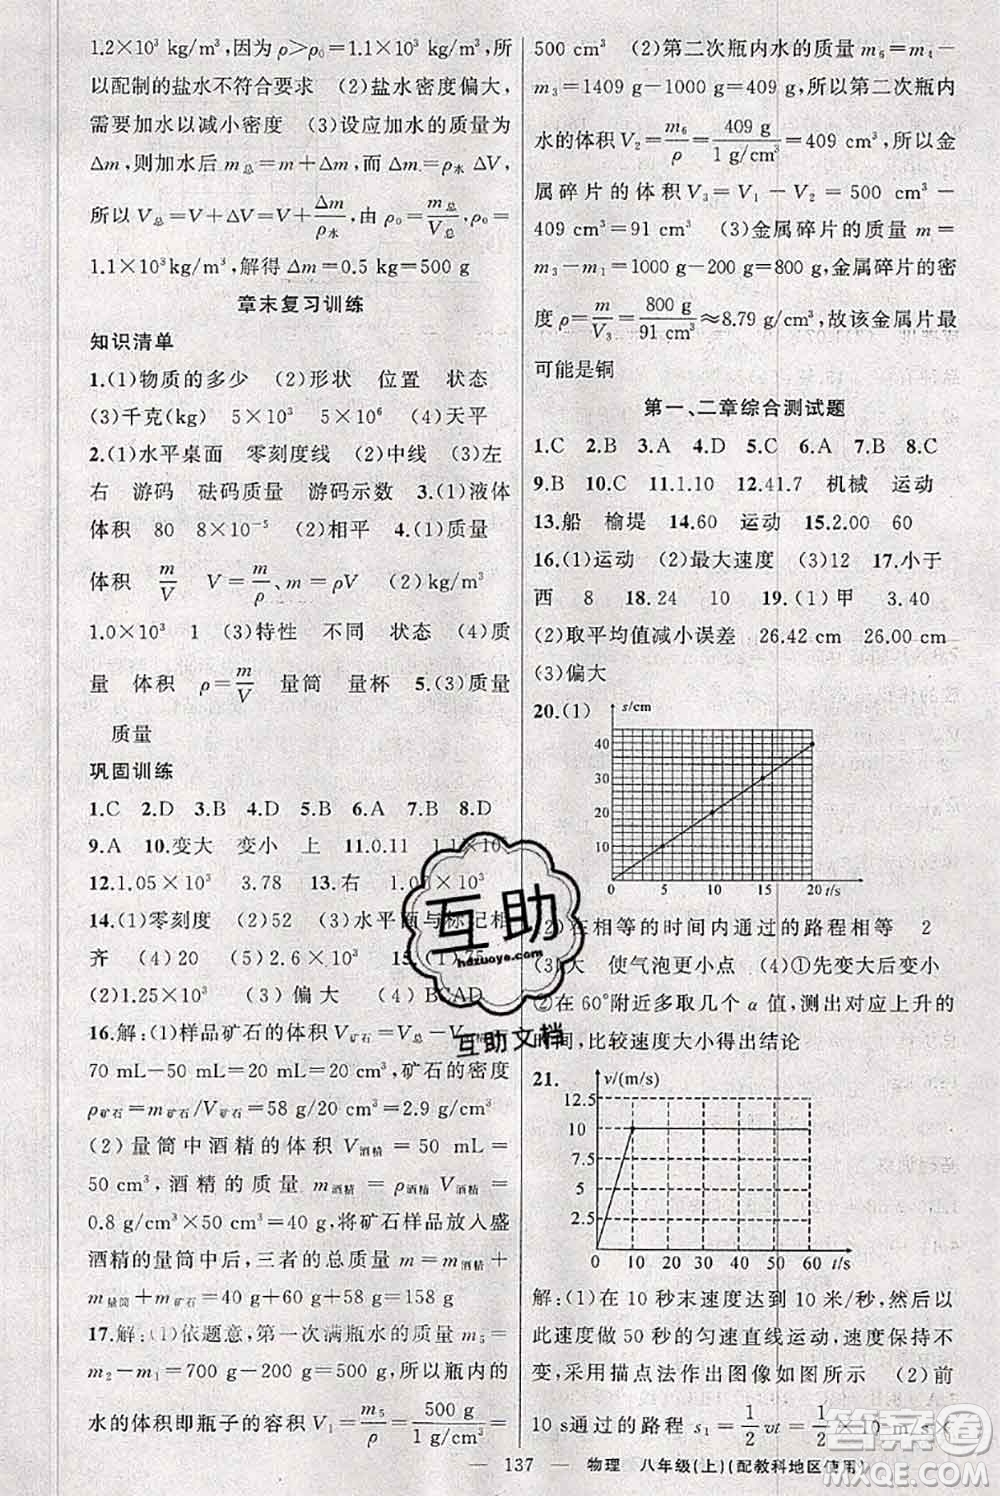 1.2×10³ kg/m³,因为 ρ>ρ₀=1.1×10³ kg/m³,所
以配制的盐水不符合要求 (2)盐水密度偏大,
需要加水以减小密度 (3)设应加水的质量为
Δm,则加水后 m总=m+Δm,而 Δm=ρ水 ΔV,
所以 V总=V+ΔV=V+Δm/ρ水,由 ρ₀=m总/V总,ρ₀=
1.1×10³ kg/m³,解得 Δm=0.5 kg=500 g
章末复习训练
知识清单
1.(1)物质的多少 (2)形状 位置 状态
(3)千克(kg) 5×10³ 5×10⁶ (4)天平
2.(1)水平桌面 零刻度线 (2)中线 (3)左
右 游码 砝码质量 游码示数 3.(1)液体
体积 80 8×10⁻⁵ (2)相平 4.(1)质量
体积 m/V V=m/ρ、m=ρV (2)kg/m³
1.0×10³ 1 (3)特性 不同 状态 (4)质
量 体积 ρ=m/V 量筒 量杯 5.(3)质量
质量
巩固训练
1.C 2.D 3.B 4.B 5.B 6.A 7.B 8.D
9.A 10.变大 变小 上 11.0.11 1.1×10³
12.1.05×10³ 3.78 13.右 1.05×10³
14.(1)零刻度 (2)52 (3)水平面与标记相
齐 (4)20 (5)2.6×10³ 15.(1)75
(2)1.25×10³ (3)偏大 (4)BCAD
16.解:(1)样品矿石的体积 V矿石=V总-V
70 mL-50 mL=20 mL=20 cm³,矿石的密度
ρ矿石=m矿石/V矿石=58 g/20 cm³=2.9 g/cm³
(2)量筒中酒精的体积 V酒精=50 mL=
50 cm³,酒精的质量 m酒精=ρ酒精 V酒精=
0.8 g/cm³×50 cm³=40 g,将矿石样品放入盛
酒精的量筒中后,三者的总质量 m=m酒精+
m量筒+m矿石=40 g+60 g+58 g=158 g
17.解:(1)依题意,第一次满瓶水的质量 m₅=
m₂-m₁=700 g-200 g=500 g,所以瓶内的
水的体积即瓶子的容积 V₁=m₅/ρ=500 g/1 g/cm³=
500 cm³ (2)第二次瓶内水的质量 m₆=m₄-
m₃=1409 g-1000 g=409 g,所以第二次瓶内
水的体积 V₂=m₆/ρ=409 g/1 g/cm³=409 cm³,所以金
属碎片的体积 V₃=V₁-V₂=500 cm³-
409 cm³=91 cm³ (3)金属碎片的质量 m=
m₃-m₁=1000 g-200 g=800 g,金属碎片的密
度 ρ=m/V₃=800 g/91 cm³≈8.79 g/cm³,故该金属片最
可能是铜
第一、二章综合测试题
1.C 2.B 3.A 4.D 5.C 6.A 7.B 8.C
9.B 10.C 11.1.10 12.41.7 机械 运动
13.船 榆堤 14.60 运动 15.2.00 60
16.(1)运动 (2)最大速度 (3)12 17.小于
西 8 18.24 10 19.(1)甲 3.40
(2)取平均值减小误差 26.42 cm 26.00 cm
(3)偏大
20.(1) s/cm
40
30
20
10
0 5 10 15 20 t/s
(2)在相等的时间内通过的路程相等 2
(3)大 使气泡更小点 (4)①先变大后变小
②在 60°附近多取几个 α 值,测出对应上升的
时间,比较速度大小得出结论
21. v/(m/s)
12.5
10
7.5
5
2.5
0 10 20 30 40 50 60 t/s
解:(1)在 10 秒末速度达到 10 米/秒,然后以
此速度做 50 秒的匀速直线运动,速度保持不
变,采用描点法作出图像如图所示 (2)前
10 s通过的路程 s₁=1/2 vt=1/2×10 m/s×
— 137 — 物理 八年级(上)(配教科地区使用)
互助
hdzuoye.com
互助文档
答案圈
MXQE.COM